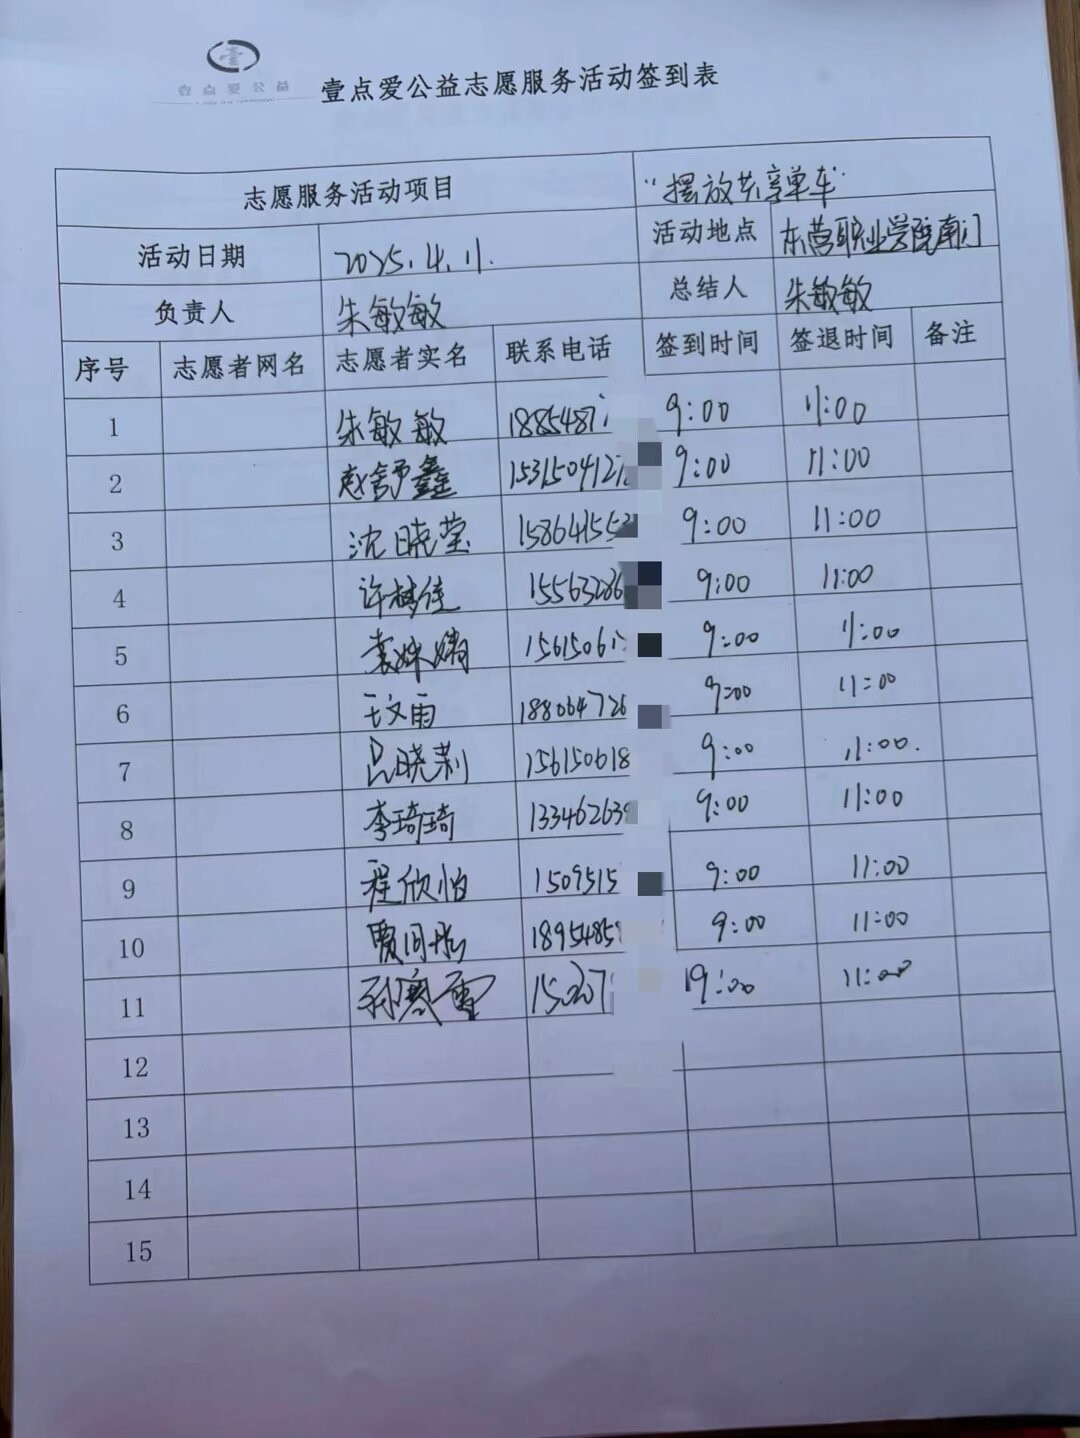 壹点爱公益
壹点爱公益志愿服务活动签到表
志愿服务活动项目 “摆放共享单车”
活动日期 2025.4.11. 活动地点 东营职业学院南门
负责人 朱敏敏 总结人 朱敏敏
序号 志愿者网名 志愿者实名 联系电话 签到时间 签退时间 备注
1 朱敏敏 1885487 9:00 11:00
2 赵舒鑫 1531504127 9:00 11:00
3 沈晓莹 158641552 9:00 11:00
4 许 佳 15563286 9:00 11:00
5 袁 1561506 9:00 11:00
6 王文雨 188064726 9:00 11:00
7 吕晓莉 156150618 9:00 11:00.
8 李琦琦 133462639 9:00 11:00
9 程欣怡 1509515 9:00 11:00
10 贾 18954859 9:00 11:00
11 孙寒雪 15 9:00 11:00
12
13
14
15